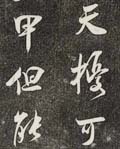 天機可
甲但能